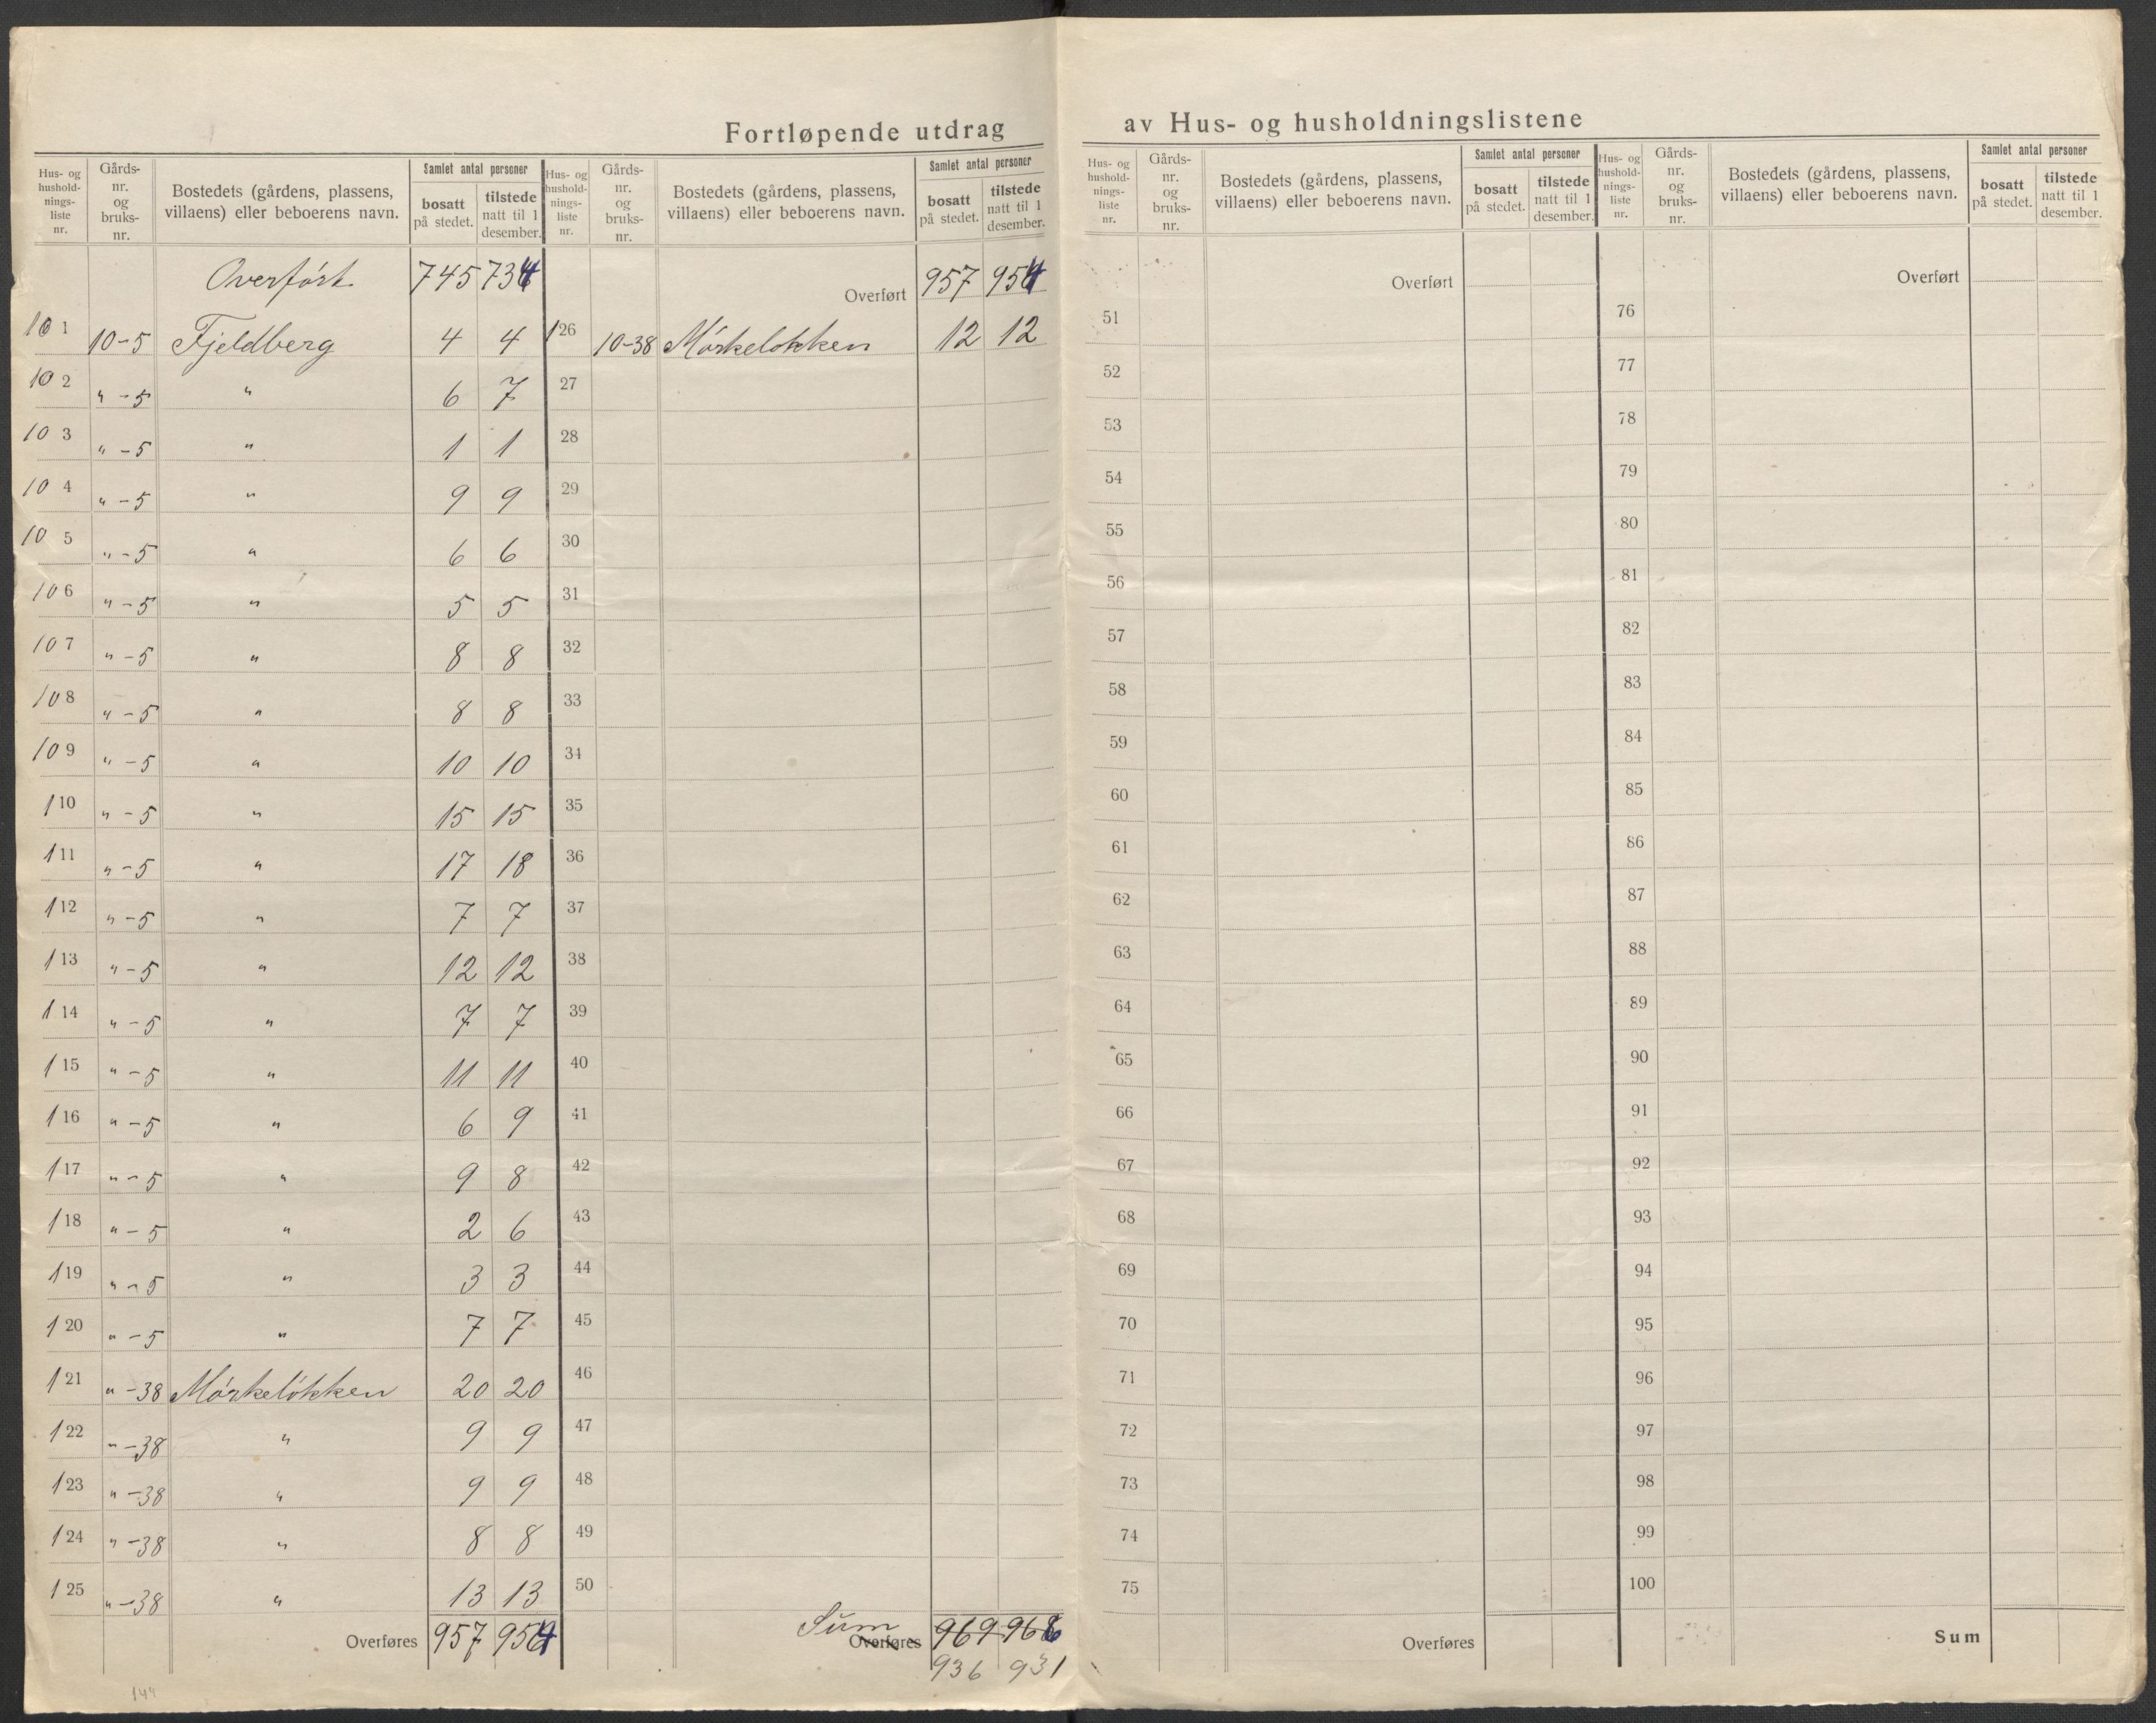 Fortløpende utdrag av Hus- og husholdningslistene
Hus- og hushold-nings-liste nr. | Gårds-nr. og bruks-nr. | Bostedets (gårdens, plassens, villaens) eller beboerens navn. | Samlet antal personer | bosatt på stedet. | tilstede natt til 1 desember.
Overført 745 734
101 10-5 Fjeldberg 4 4
102 " -5 " 6 7
103 " -5 " 1 1
104 " -5 " 9 9
105 " -5 " 6 6
106 " -5 " 5 5
107 " -5 " 8 8
108 " -5 " 8 8
109 " -5 " 10 10
110 " -5 " 15 15
111 " -5 " 17 18
112 " -5 " 7 7
113 " -5 " 12 12
114 " -5 " 7 7
115 " -5 " 11 11
116 " -5 " 6 9
117 " -5 " 9 8
118 " -5 " 2 6
119 " -5 " 3 3
120 " -5 " 7 7
121 " -38 Mórkelókken 20 20
122 " -38 " 9 9
123 " -38 " 9 9
124 " -38 " 8 8
125 " -38 " 13 13
Overføres 957 954
144
Hus- og hushold-nings-liste nr. | Gårds-nr. og bruks-nr. | Bostedets (gårdens, plassens, villaens) eller beboerens navn. | Samlet antal personer | bosatt på stedet. | tilstede natt til 1 desember.
Overført 957 954
126 10-38 Mórkelokken 12 12
27
28
29
30
31
32
33
34
35
36
37
38
39
40
41
42
43
44
45
46
47
48
49
50
Sum Overføres 969 966
936 931
Hus- og hushold-nings-liste nr. | Gårds-nr. og bruks-nr. | Bostedets (gårdens, plassens, villaens) eller beboerens navn. | Samlet antal personer | bosatt på stedet. | tilstede natt til 1 desember.
Overført
51
52
53
54
55
56
57
58
59
60
61
62
63
64
65
66
67
68
69
70
71
72
73
74
75
Overføres
Hus- og hushold-nings-liste nr. | Gårds-nr. og bruks-nr. | Bostedets (gårdens, plassens, villaens) eller beboerens navn. | Samlet antal personer | bosatt på stedet. | tilstede natt til 1 desember.
Overført
76
77
78
79
80
81
82
83
84
85
86
87
88
89
90
91
92
93
94
95
96
97
98
99
100
Sum